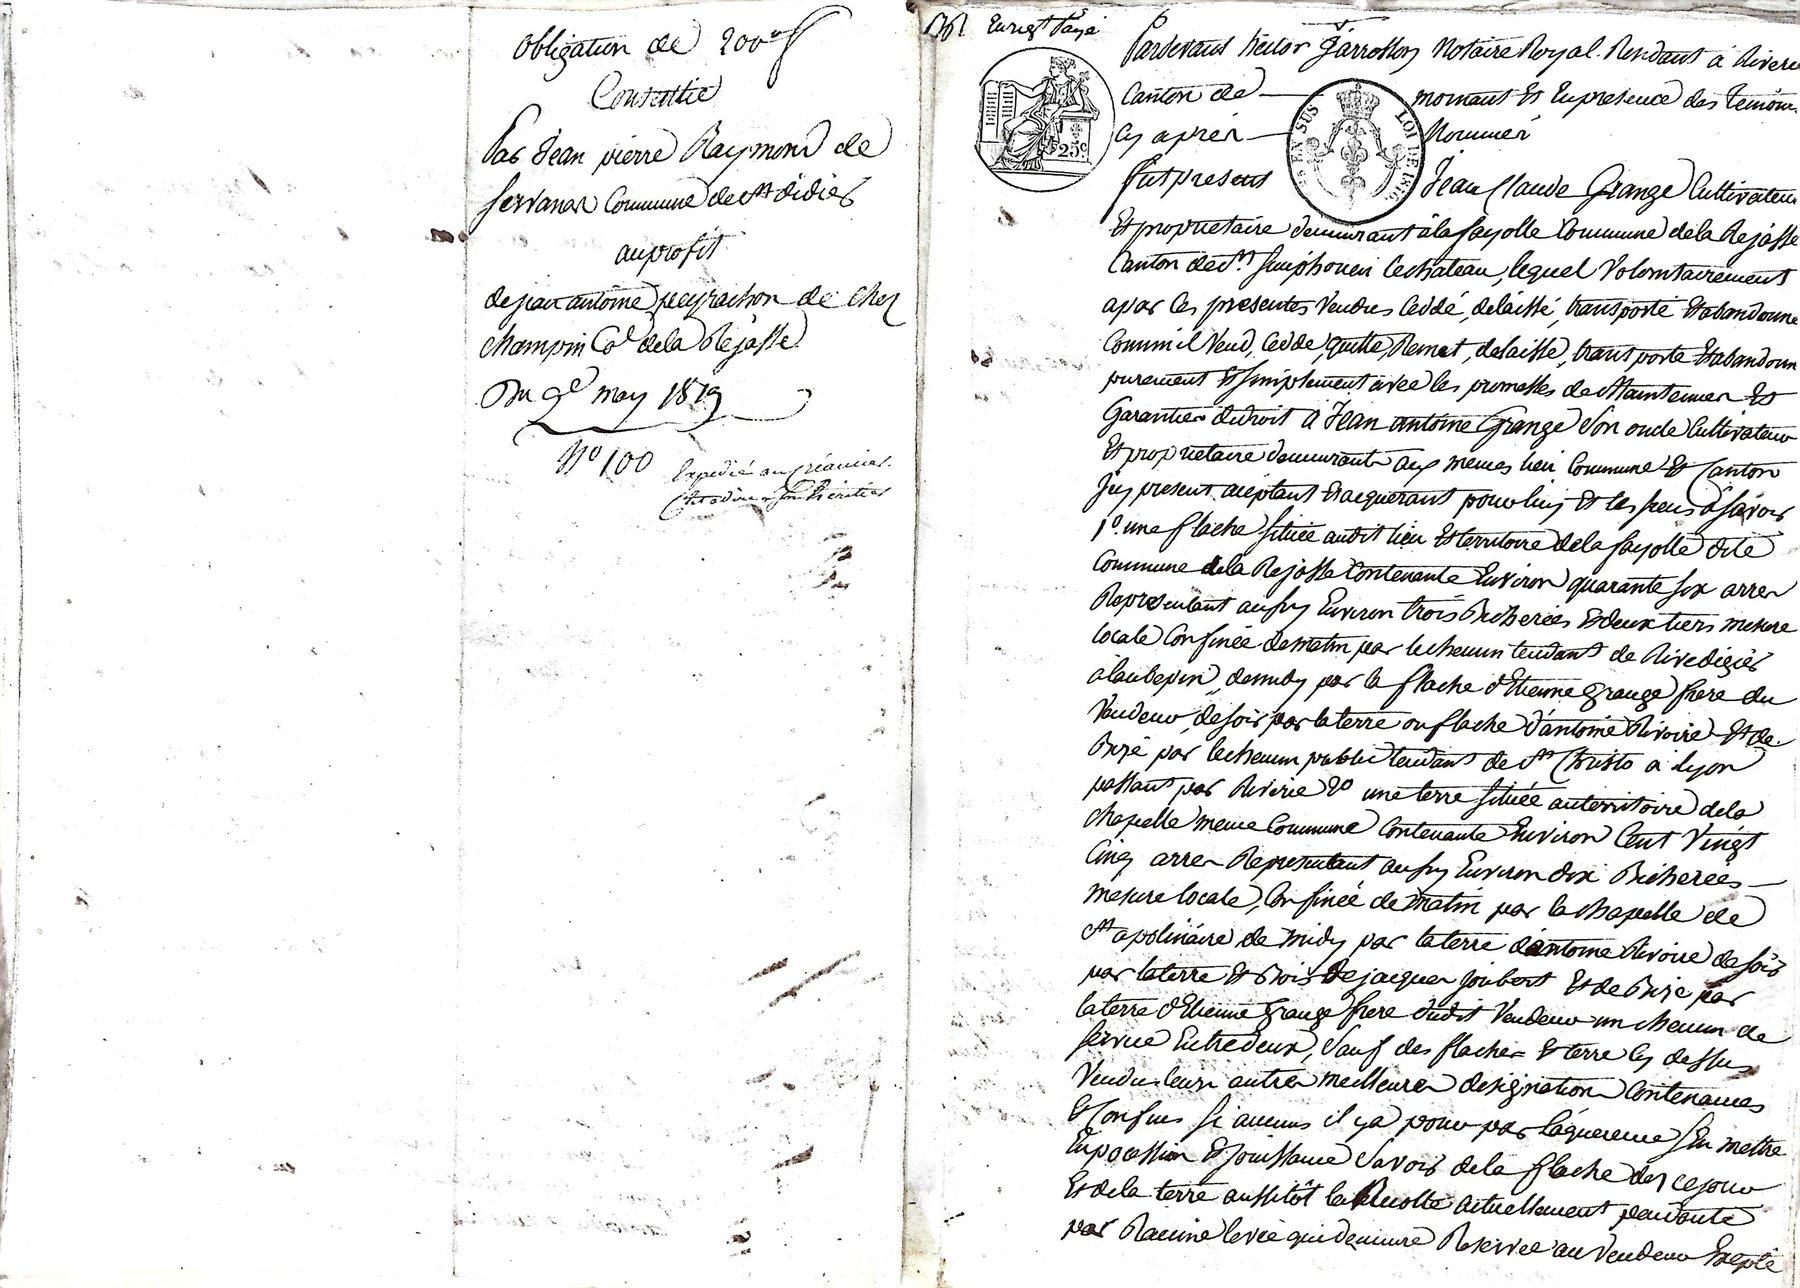 Obligation de 200 f
Consentie
Par Jean pierre Raymond de
Servanas Commune de St didier
au profit
de jean antoine peyrachon de chez
champin Coe de la Rejasse
Du 9e may 1819
No 100
Expedié au Créancier
Enregt payé
Pardevant hector Jarrosson Notaire Royal Residant à Riverie
Canton de mornant Et En presence des temoins
Cy aprés Nommés
fut present Jean Claude Grange Cultivateur
Et proprietaire demeurant à la fayolle Commune de la Rejasse
Canton de St. simphorien le chateau, lequel Volontairement
a par les presentes Vendu Ceddé, delaissé, transporté Et abandonné
Comm'il Vend, Cedde, quitte, Remet, delaisse, transporte Et abandonne
purement Et simplement avec les promesses de Maintenir Et
Garantir de droit à Jean antoine Grange Son oncle Cultivateur
Et proprietaire demeurant aux memes lieu Commune Et Canton
Icy present aceptant Et acquerant pour luy Et les siens à Savoir
1o. une flache située audit lieu Et territoire de la fayolle dite
Commune de la Rejasse Contenante Environ quarante six arres
Representant ausy Environ trois Bicherées Et deux tiers mesure
locale Confinée de matin par le chemin tendant de Rivedigier
à laubepin, de midy par la flache d'Etienne Grange frere du
Vendeur, de soir par la terre ou flache d'antoine Rivoire Et de
Bize par le chemin public tendant de St Christo à Lyon
passant par Riverie 2o une terre située au territoire de la
chapelle meme Commune Contenante Environ Cent Vingt
Cinq arres Representant ausy Environ dix Bicherées
mesure locale, Confinée de matin par la chapelle de
St apolinaire de midy par la terre d'antoine Rivoire de soir
par la terre Et Bois de jacques joubert Et de Bize par
la terre d'Etienne Grange frere dudit Vendeur un chemin de
service Entredeux, Sauf des flaches Et terre Cy dessus
Vendus leurs autres meilleures designation Contenances
Et Confins si aucuns il y a pour par l'aquereur S'En mettre
En possession Et jouissance Savoir de la flache des ce jour
Et de la terre aussitôt la Recolte actuellement pendante
par Racine levée qui demeure Reservée au Vendeur Exepté